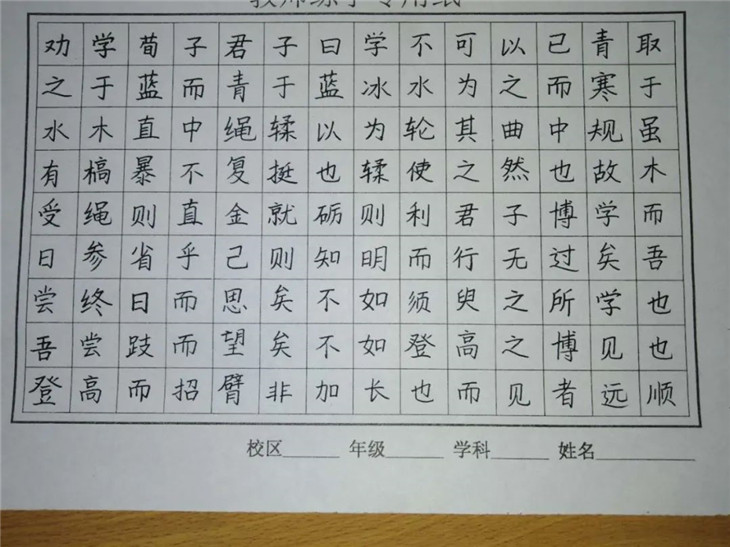 教师练字专用纸
劝学荀子君子曰学不可以已青取
之于蓝而青于蓝冰水为之而寒于
水木直中绳輮以为轮其曲中规虽
有槁暴不复挺也輮使之然也故木
受绳则直金就砺则利君子博学而
日参省乎己则知明而行无过矣吾
尝终日而思矣不如须臾之所学也
吾尝跂而望矣不如登高之博见也
登高而招臂非加长也而见者远顺
校区 年级 学科 姓名